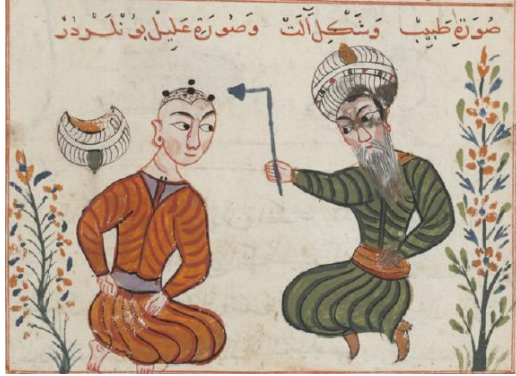 صورة طبيب وشكل آلت وصورة عليل بو نلردر